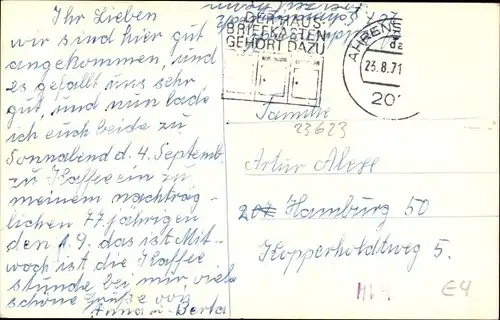 Ihr Lieben
wir sind hier gut
angekommen, und
es gefällt uns sehr
gut, und nun lade
ich euch beide zu
Sonnabend d. 4. Septemb.
zu Kaffee ein zu
meinem nachträg-
lichen 77. jährigen
den 1.9. das ist Mitt-
woch ist die Kaffee
stunde bei mir, viele
schöne Grüße von
Anna u. Berta
DER HAUS-
BRIEFKASTEN
GEHÖRT DAZU
AHRENS
23.8.71
207
Familie
23623
Artur
207 Hamburg 50
Kopperholdtweg 5.
E4